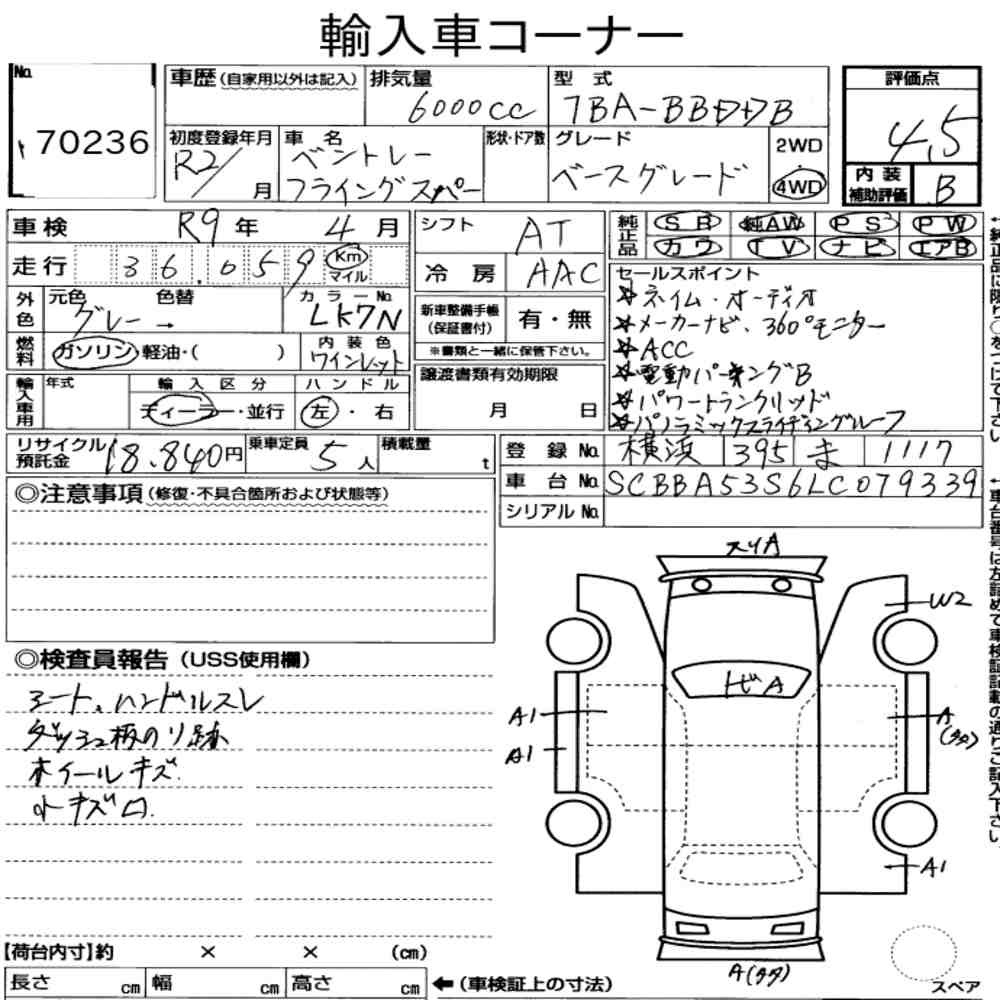 輸入車コーナー
No.
70236
車歴(自家用以外は記入)
排気量
6000cc
型式
7BA-BBDDB
評価点
4.5
初度登録年月
R2/ 月
車名
ベントレー
フライングスパー
形状・ドア数
グレード
ベースグレード
2WD
4WD
内装
補助評価
B
車検
R9年 4月
走行
36.059
Km
マイル
シフト
AT
冷房
AAC
純正品
SR 純AW PS PW
カワ TV ナビ エアB
外色
元色 色替
グレー →
カラーNo.
LK7N
燃料
ガソリン・軽油・( )
内装色
ワインレット
新車整備手帳
(保証書付)
有・無
※書類と一緒に保管下さい。
セールスポイント
☆ネイム・オーディオ
☆メーカーナビ、360°モニター
☆ACC
☆電動パーキングB
☆パワートランクリッド
☆パノラミックスライディングルーフ
輸入車用
年式
輸入区分
ディーラー・並行
ハンドル
左・右
譲渡書類有効期限
月 日
リサイクル
預託金
18.840円
乗車定員
5人
積載量
t
登録No.
横浜 395 ま 1117
車台No.
SCBBA53S6LC079339
シリアルNo.
◎注意事項(修復・不具合箇所および状態等)
◎検査員報告(USS使用欄)
シート、ハンドルスレ
ダッシュ板のり跡
ホイールキズ
小キズ凹
スリA
W2
トビA
A1
A
(タタ)
A1
A1
A(タタ)
スペア
【荷台内寸】約 × × (cm)
長さ cm 幅 cm 高さ cm
←(車検証上の寸法)